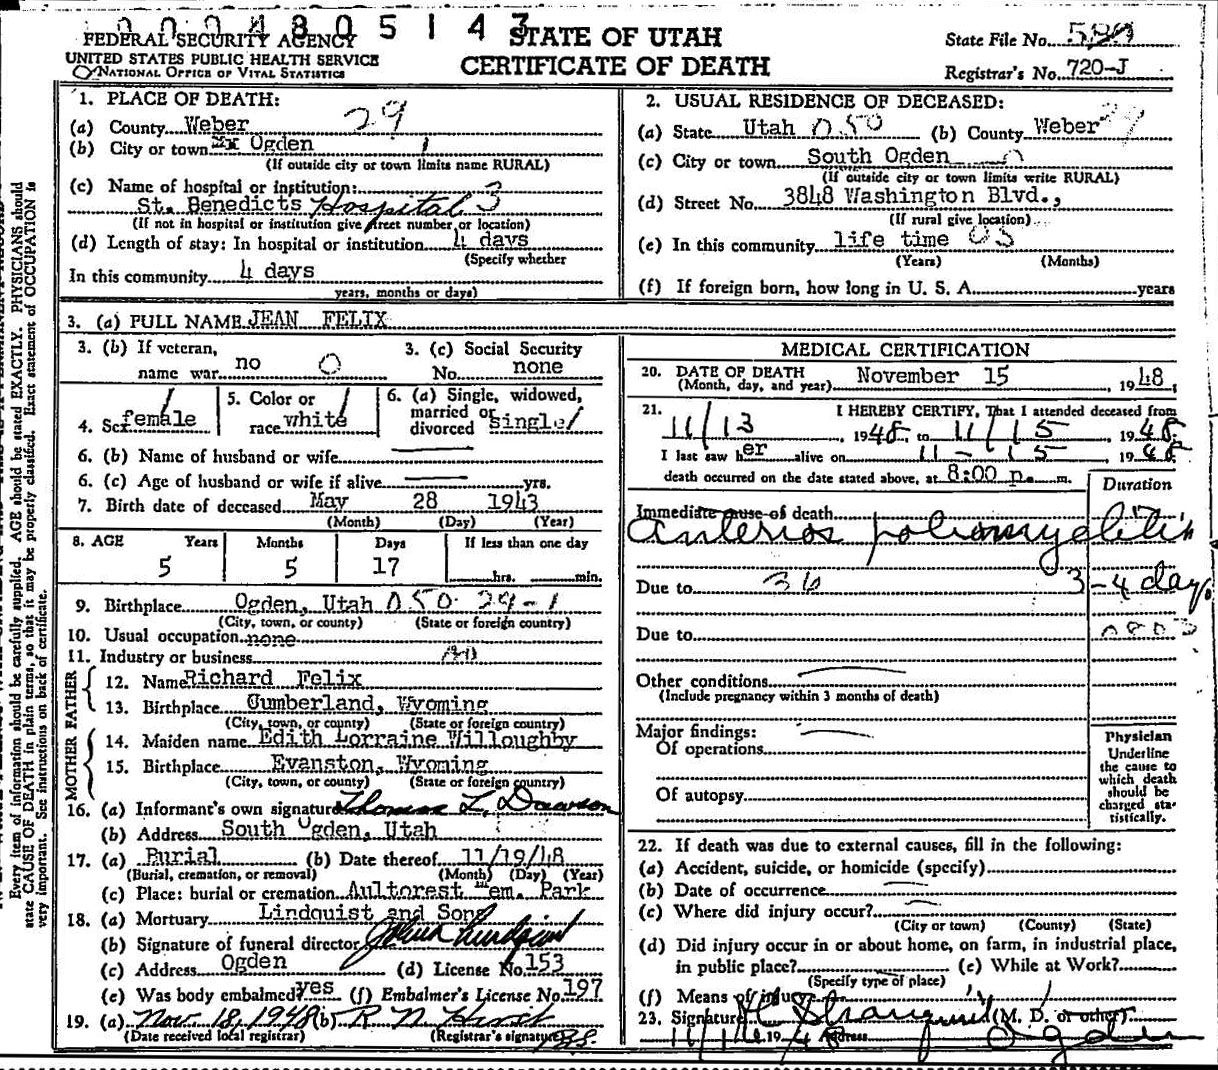 0004805143
FEDERAL SECURITY AGENCY
UNITED STATES PUBLIC HEALTH SERVICE
NATIONAL OFFICE OF VITAL STATISTICS
STATE OF UTAH
CERTIFICATE OF DEATH
State File No.
Registrar's No. 720-J
1. PLACE OF DEATH: 29
(a) County Weber
(b) City or town Ogden
(If outside city or town limits name RURAL)
(c) Name of hospital or institution: 3
St. Benedicts Hospital 3
(If not in hospital or institution give street number or location)
(d) Length of stay: In hospital or institution 4 days
(Specify whether
In this community 4 days
years, months or days)
2. USUAL RESIDENCE OF DECEASED:
(a) State Utah 050 (b) County Weber 29
(c) City or town South Ogden 0
(If outside city or town limits write RURAL)
(d) Street No. 3848 Washington Blvd.,
(If rural give location)
(e) In this community life time 05
(Years) (Months)
(f) If foreign born, how long in U. S. A. years
3. (a) FULL NAME JEAN FELIX
3. (b) If veteran, name war no 0
3. (c) Social Security No. none
4. Sex female
5. Color or race white
6. (a) Single, widowed, married or divorced single
6. (b) Name of husband or wife
6. (c) Age of husband or wife if alive yrs.
7. Birth date of deceased May 28 1943
(Month) (Day) (Year)
8. AGE Years Months Days If less than one day
5 5 17 hrs. min.
9. Birthplace Ogden, Utah 050 29-1
(City, town, or county) (State or foreign country)
10. Usual occupation none
11. Industry or business
FATHER
12. Name Richard Felix
13. Birthplace Cumberland, Wyoming
(City, town, or county) (State or foreign country)
MOTHER
14. Maiden name Edith Lorraine Willoughby
15. Birthplace Evanston, Wyoming
(City, town, or county) (State or foreign country)
16. (a) Informant's own signature Thomas L. Dawson
(b) Address South Ogden, Utah
17. (a) Burial (b) Date thereof 11/19/48
(Burial, cremation, or removal) (Month) (Day) (Year)
(c) Place: burial or cremation Aultorest Mem. Park
18. (a) Mortuary Lindquist and Sons
(b) Signature of funeral director John Lindquist
(c) Address Ogden (d) License No. 153
(e) Was body embalmed? yes (f) Embalmer's License No. 197
19. (a) Nov. 18, 1948 (b) R N Hirst
(Date received local registrar) (Registrar's signature)
MEDICAL CERTIFICATION
20. DATE OF DEATH
(Month, day, and year) November 15, 1948
21. I HEREBY CERTIFY, That I attended deceased from
11/13, 1948, to 11/15, 1948.
I last saw her alive on 11-15, 1948
death occurred on the date stated above, at 8:00 p. m.
Duration
Immediate cause of death
anterior poliomyelitis
Due to 36 3-4 days
Due to
Other conditions
(Include pregnancy within 3 months of death)
Major findings:
Of operations
Of autopsy
Physician
Underline
the cause to
which death
should be
charged sta-
tistically.
22. If death was due to external causes, fill in the following:
(a) Accident, suicide, or homicide (specify)
(b) Date of occurrence
(c) Where did injury occur?
(City or town) (County) (State)
(d) Did injury occur in or about home, on farm, in industrial place,
in public place? (e) While at Work?
(Specify type of place)
(f) Means of injury
23. Signature (M. D. or other)
19 48 Address Ogden
Every item of information should be carefully supplied. AGE should be stated EXACTLY. PHYSICIANS should
state CAUSE OF DEATH in plain terms, so that it may be properly classified. Exact statement of OCCUPATION is
very important. See instructions on back of certificate.